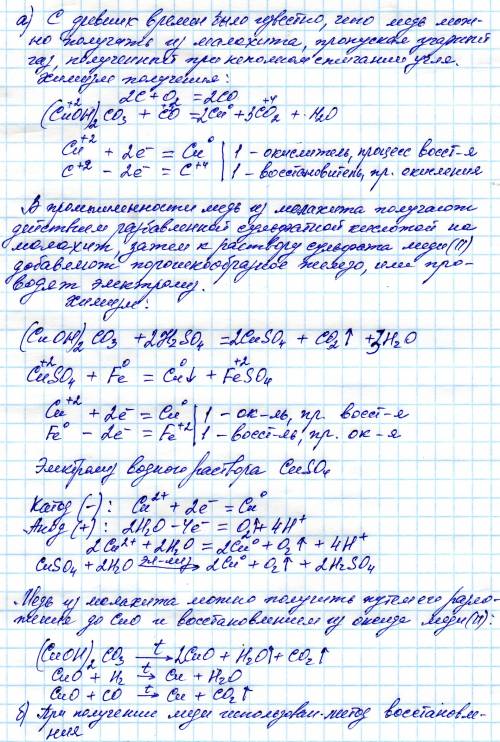 а) С древних времен было известно, что медь мож-
но получать из малахита, пропуская угарный
газ, полученный при неполном сжигании угля.
Химизм получения:
2C + O₂ = 2CO
(CuOH)₂CO₃ + 2CO = 2Cu⁰ + 3CO₂ + H₂O
Cu⁺² + 2e⁻ = Cu⁰ | 1 - окислитель, процесс восст-я
C⁺² - 2e⁻ = C⁺⁴ | 1 - восстановитель, пр. окисления
В промышленности медь из малахита получают
действием разбавленной сульфатной кислотой на
малахит, затем к раствору сульфата меди (II)
добавляют порошкообразное железо, или про-
водят электролиз.
Химизм:
(CuOH)₂CO₃ + 2H₂SO₄ = 2CuSO₄ + CO₂↑ + 3H₂O
Cu⁺²SO₄ + Fe⁰ = Cu⁰↓ + Fe⁺²SO₄
Cu⁺² + 2e⁻ = Cu⁰ | 1 - ок-ль, пр. восст-я
Fe⁰ - 2e⁻ = Fe⁺² | 1 - восст-ль, пр. ок-я
Электролиз водного раствора CuSO₄
Катод (-): Cu²⁺ + 2e⁻ = Cu⁰
Анод (+): 2H₂O - 4e⁻ = O₂↑ + 4H⁺
2Cu²⁺ + 2H₂O = 2Cu⁰ + O₂↑ + 4H⁺
2CuSO₄ + 2H₂O эл-лиз→ 2Cu⁰ + O₂↑ + 2H₂SO₄
Медь из малахита можно получить путем его разло-
жения до CuO и восстановлением из оксида меди (II):
(CuOH)₂CO₃ t→ 2CuO + H₂O↑ + CO₂↑
CuO + H₂ t→ Cu + H₂O
CuO + CO t→ Cu + CO₂↑
б) При получении меди использован метод восстановле-
ния